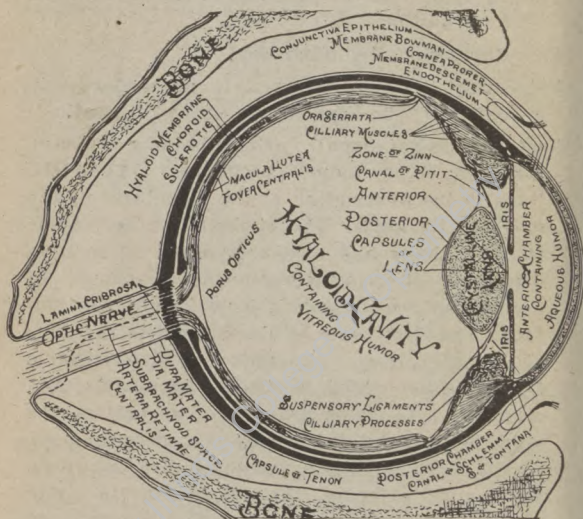 BONE
CONJUNCTIVA EPITHELIUM
MEMBRANE BOWMAN
CORNEA PROPER
MEMBRANE DESCEMET
ENDOTHELIUM
HYALOID MEMBRANE
CHOROID
SCLEROTIC
ORA SERRATA
CILLIARY MUSCLES
ZONE OF ZINN
CANAL OF PITIT
ANTERIOR
POSTERIOR
CAPSULES
LENS
MACULA LUTEA
FOVEA CENTRALIS
PORUS OPTICUS
HYALOID CAVITY
CONTAINING
VITREOUS HUMOR
CRYSTALLINE
LENS
IRIS
IRIS
ANTERIOR CHAMBER
CONTAINING
AQUEOUS HUMOR
LAMINA CRIBROSA
OPTIC NERVE
DURA MATER
PIA MATER
SUBARACHNOID SPACE
ARTERIA RETINAE
CENTRALIS
SUSPENSORY LIGAMENTS
CILLIARY PROCESSES
CAPSULE OF TENON
POSTERIOR CHAMBER
CANAL OF SCHLEMM
S. OF FONTANA
BONE